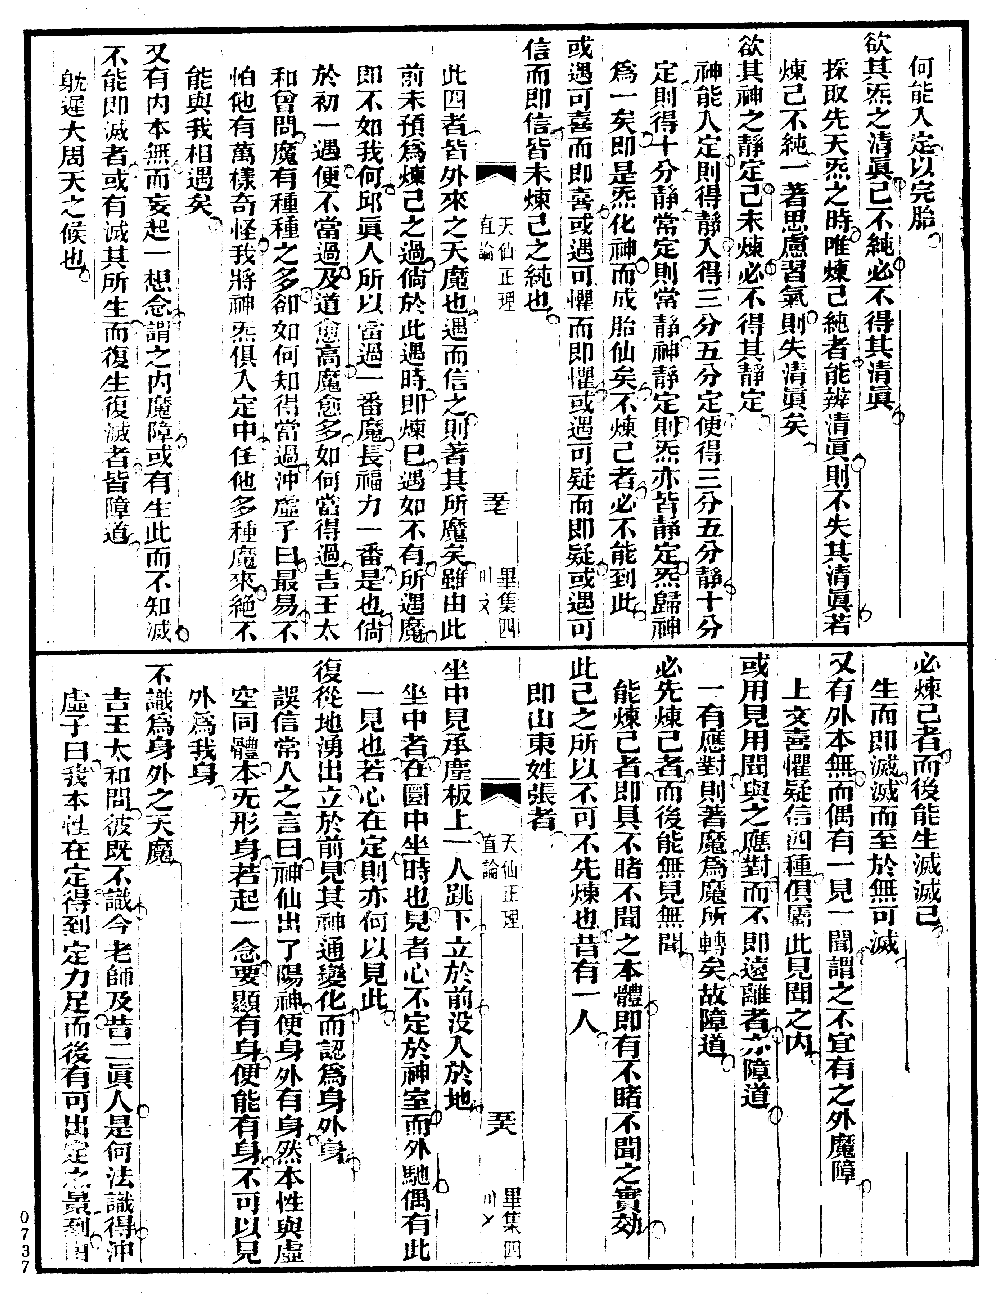 何能入定以完胎
欲其炁之清真己不純必不得其清真
採取先天炁之時唯煉己純者能辨清真則不失其清真若
煉己不純一著思慮習氣則失清真矣
欲其神之靜定己未煉必不得其靜定
神能入定則得靜入得三分五分定使得三分五分靜十分
定則得十分靜常定則常靜神靜定則炁亦皆靜定炁歸神
為一矣即是炁化神而成胎仙矣不煉己者必不能到此
或遇可喜而即喜或遇可懼而即懼或遇可疑而即疑或遇可
信而即信皆未煉己之純也
天仙正理
直論
畢集四
此四者皆外來之天魔也遇而信之則著其所魔矣雖由此
前未預為煉己之過倘於此遇時即煉巳遇如不有所遇魔
即不如我何邱真人所以當過一番魔長福力一番是也倘
於初一遇便不當過及道愈高魔愈多如何當得過吉王太
和曾問魔有種種之多卻如何知得當過沖虛子曰最易不
怕他有萬樣奇怪我將神炁俱入定中任他多種魔來絕不
能與我相遇矣
又有內本無而妄起一想念謂之內魔障或有生此而不知滅
不能即滅者或有滅其所生而復生復滅者皆障道
躭遲大周天之候也
必煉己者而後能生滅滅已
生而即滅滅而至於無可滅
又有外本無而偶有一見一聞謂之不宜有之外魔障
上文喜懼疑信四種俱屬此見聞之內
或用見用聞與之應對而不即遠離者亦障道
一有應對則著魔為魔所轉矣故障道
必先煉己者而後能無見無聞
能煉己者即具不睹不聞之本體即有不睹不聞之實効
此己之所以不可不先煉也昔有一人
即山東姓張者
天仙正理
直論
畢集四
坐中見承塵板上一人跳下立於前没入於地
坐中者在圜中坐時也見者心不定於神室而外馳偶有此
一見也若心在定則亦何以見此
復從地湧出立於前見其神通變化而認為身外身
誤信常人之言曰神仙出了陽神便身外有身然本性與虛
空同體本无形身若起一念要顯有身便能有身不可以見
外為我身
不識為身外之天魔
吉王太和問彼既不識今老師及昔二真人是何法識得沖
虛子曰我本性在定得到定力足而後有可出定之景到由
0737